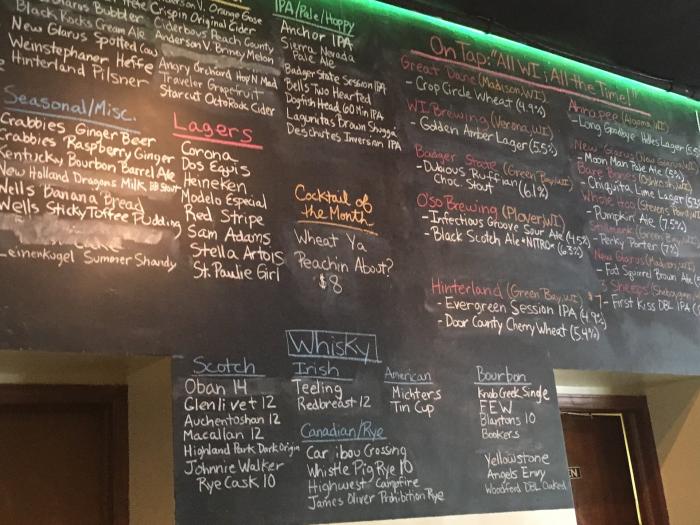 Bubbler
Black Rocks Cream Ale
New Glarus Spotted Cow
Weinstephaner Heffe
Hinterland Pilsner
Orange Gose
Crispin Original Cider
Ciderboys Peach County
Anderson V. Briney Melon
Angry Orchard Hop'N Mad
Traveler Grapefruit
Starcut OctoRock Cider
IPA/Pale/Hoppy
Anchor IPA
Sierra Nevada
Pale Ale
Badger State Session IPA
Bells Two Hearted
Dogfish Head 60 Min IPA
Lagunitas Brown Shugga
Deschutes Inversion IPA
Seasonal/Misc.
Crabbies Ginger Beer
Crabbies Raspberry Ginger
Kentucky Bourbon Barrel Ale
New Holland Dragons Milk, BB Stout
Wells Banana Bread
Wells Sticky Toffee Pudding
Leinenkugel Summer Shandy
Lagers
Corona
Dos Equis
Heineken
Modelo Especial
Red Stripe
Sam Adams
Stella Artois
St. Paulie Girl
Cocktail of
the Month
Wheat Ya
Peachin About?
$8
On Tap: "All WI; All the Time!"
Great Dane (Madison, WI)
- Crop Circle Wheat (4.9%)
WI Brewing (Verona, WI)
- Golden Amber Lager (5.5%)
Badger State (Green Bay, WI)
- Dubious Ruffian
Choc. Stout (6.1%)
O'so Brewing (Plover, WI)
- Infectious Groove Sour Ale (4.5%)
- Black Scotch Ale *NITRO*
Hinterland (Green Bay, WI)
- Evergreen Session IPA (4.9%)
- Door County Cherry Wheat (5.4%)
Ahnapee (Algoma, WI)
- Long Goodbye Helles Lager
New Glarus (New Glarus, WI)
- Moon Man Pale Ale (5%)
Bare Bones (Oshkosh, WI)
- Chiquita Lime Lager
Whole Hog (Stevens Point
- Pumpkin Ale (7.5%)
Stillmank (Green
- Perky Porter (7%)
New Glarus
- Fat Squirrel Brown Ale
3 Sheeps (Sheboygan
$7 - First Kiss DBL IPA
Whisky
Scotch
Oban 14
Glenlivet 12
Auchentoshan 12
Macallan 12
Highland Park Dark Origin
Johnnie Walker
Rye Cask 10
Irish
Teeling
Redbreast 12
Canadian/Rye
Caribou Crossing
Whistle Pig Rye 10
Highwest Campfire
James Oliver Prohibition Rye
American
Michters
Tin Cup
Bourbon
Knob Creek Single
FEW
Blantons 10
Bookers
Yellowstone
Angels Envy
Woodford DBL Oaked